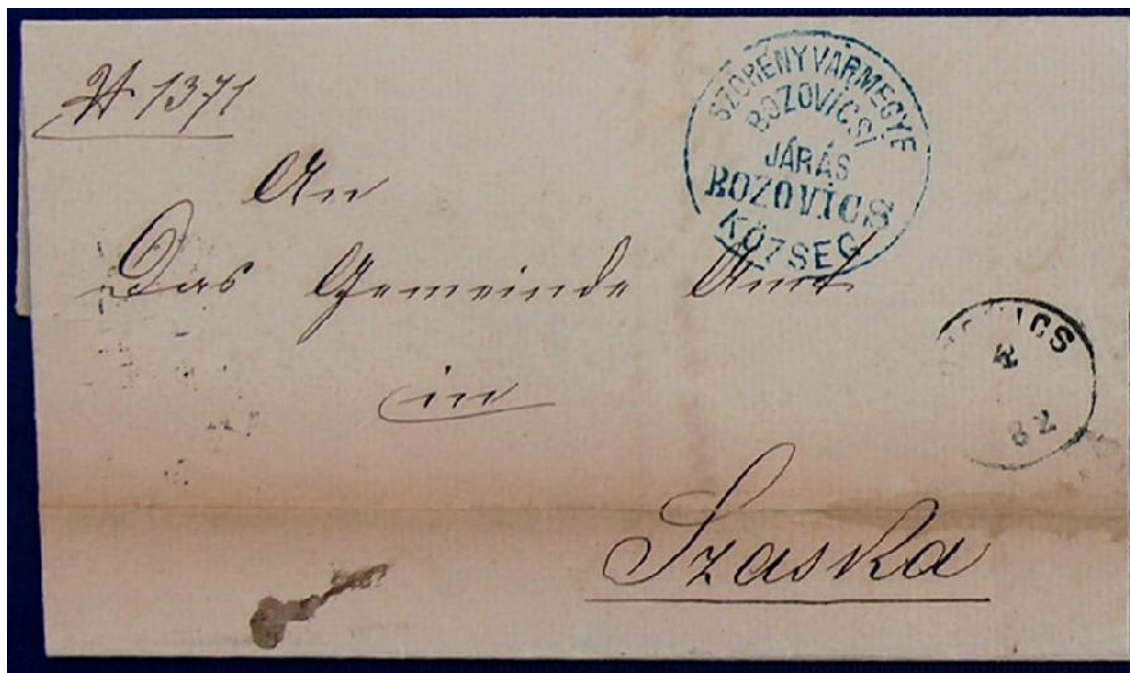 # 1371
SZÖRÉNYVÁRMEGYE
BOZOVICSI
JÁRÁS
BOZOVICS
KÖZSEG
An
Das Gemeinde Amt
in
82
Szaska